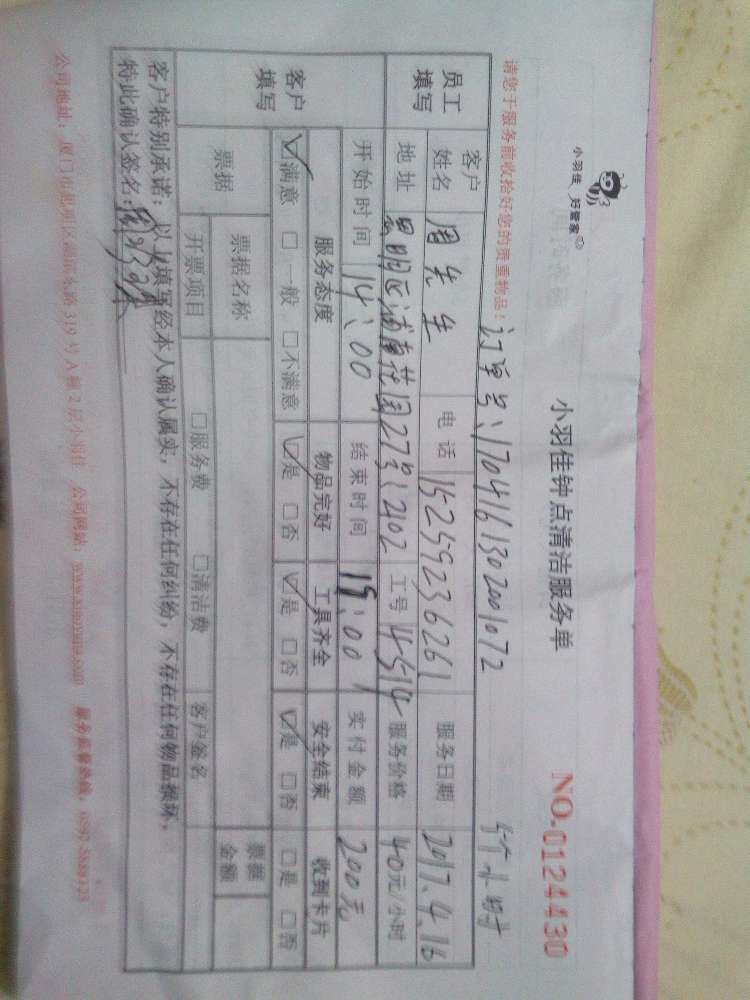 小羽佳 好管家
小羽佳钟点清洁服务单
NO.0124430
请您于服务前收拾好您的贵重物品！
订单号：1704161302001072
5个小时
员工填写
客户姓名 周先生 电话 15259236261 服务日期 2017.4.16
地址 思明区浦南花园27号2102 工号 4514 服务价格 40元/小时
开始时间 14:00 结束时间 19:00 实付金额 200元
客户填写
服务态度 物品完好 工具齐全 安全结束 收到卡片
☑满意 □一般 □不满意 ☑是 □否 ☑是 □否 ☑是 □否 □是 □否
票据 票据名称 票据金额
开票项目 □服务费 □清洁费 客户签名
客户特别承诺：以上填写经本人确认属实，不存在任何纠纷，不存在任何物品损坏，
特此确认签名：
公司地址：厦门市思明区 319号A幢2层小羽佳 公司网站： 服务监督热线：